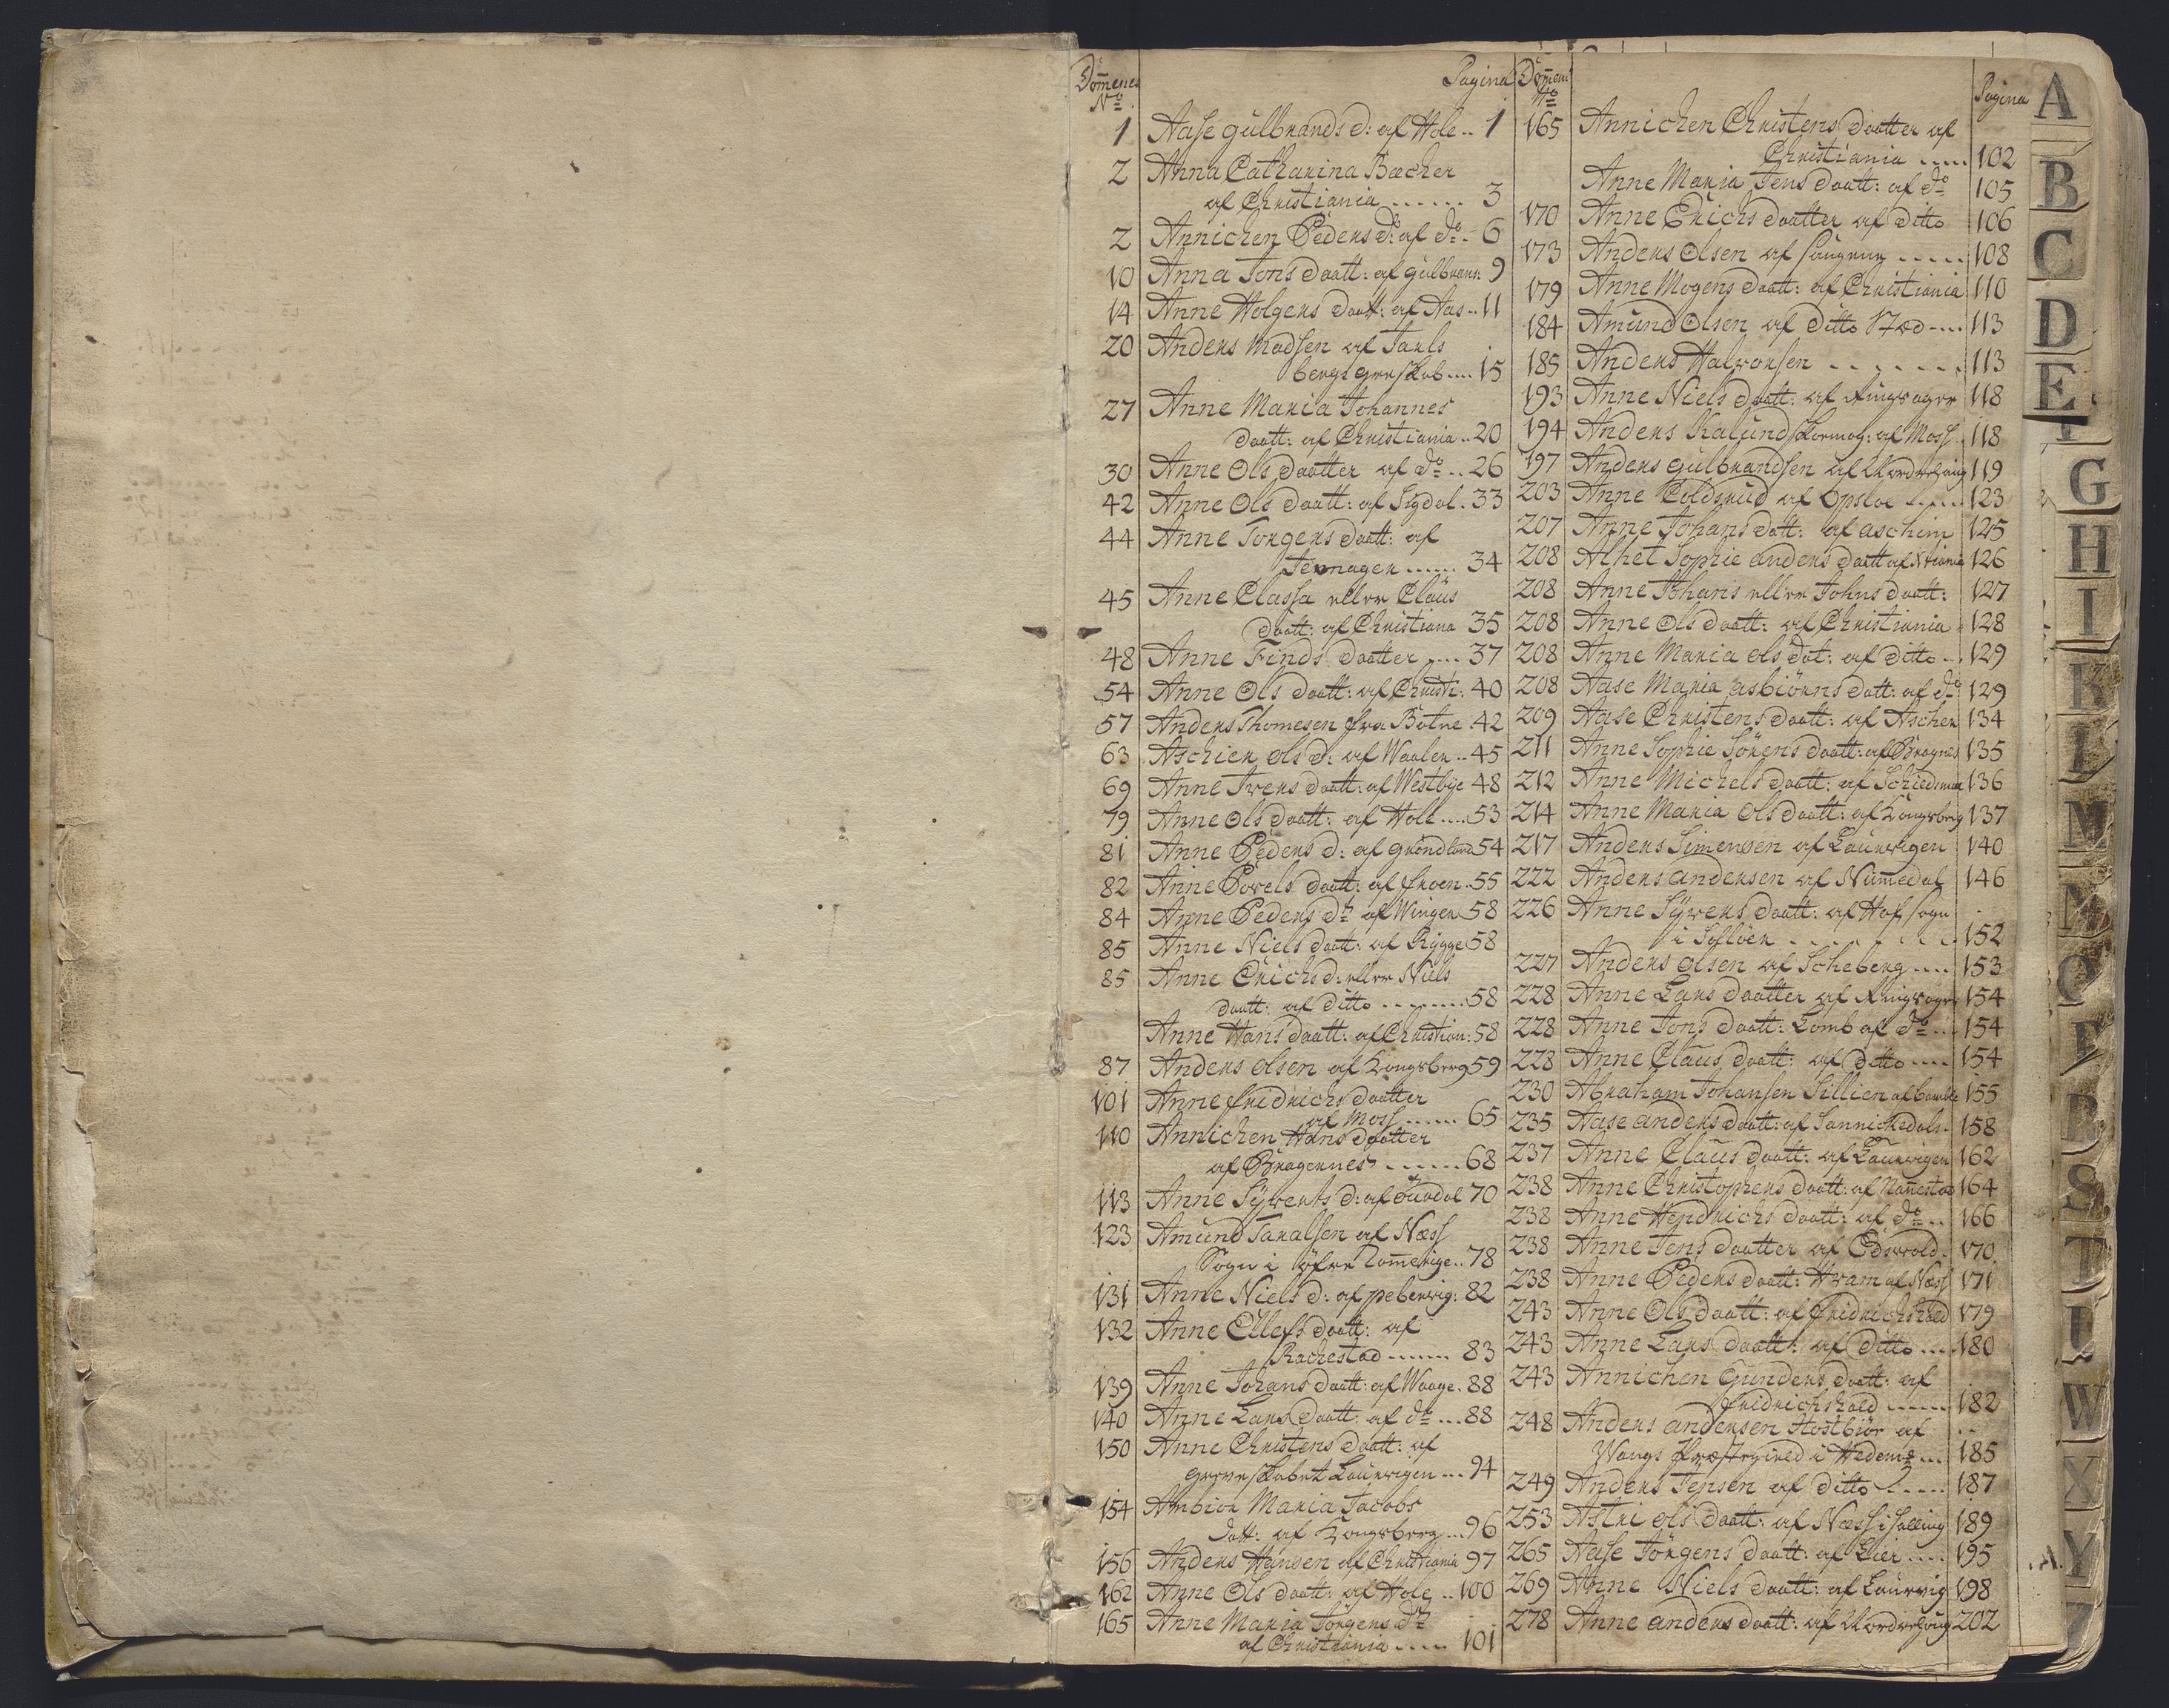 Dom̅enes
No.
Pagina
1 Aase gulbrands d: af Hole .. 1
2 Anna Catharina Bæcher
af Christiania ...... 3
2 Annichen Peders d: af do .. 6
10 Anna Jons daatt: af gulbrans: 9
14 Anne Holgers daatt: af Aas .. 11
20 Anders Madsen af Jarls
bergs grevskab .... 15
27 Anne Maria Johannes
daatt: af Christiania .. 20
30 Anne Ols daatter af do .. 26
42 Anne Ols daatt: af Sigdal . 33
44 Anne Jorgens daatt: af
Jevnager ...... 34
45 Anne Classa eller Claüs
daatt: af Christiana 35
48 Anne Finds daatter .... 37
54 Anne Ols daatt: af Christi: 40
57 Anders Thomesen fra Botne 42
63 Aschier Ols d: af Waaler .. 45
69 Anne Ivers daatt: af Westbye 48
79 Anne Ols daatt: af Hole .... 53
81 Anne Peders d: af grøndland 54
82 Anne Povels daatt: af froen .. 55
84 Anne Peders dr af Winger 58
85 Anne Niels daatt: af Rygge 58
85 Anne Erichs d: eller Niels
daatt: af ditto ........ 58
Anne Hans daatt: af Christian: 58
87 Anders Olsen af Kongsberg 59
101 Anne fridrichs daatter
af Moss ...... 65
110 Annichen Hans daatter
af Bragernes ...... 68
113 Anne Syverts d: af 70
123 Amund Taralsen af Næss
Sogn i øfre Rom̅erige .. 78
131 Anne Niels d: af pebervig: 82
132 Anne Ellefs daatt: af
Rachestad ....... 83
139 Anne Johans daatt: af Waage . 88
140 Anne Lars daatt: af do ... 88
150 Anne Christens daatt: af
grevskabet Laurvigen ... 94
154 Ambior Maria Jacobs
datt: af Kongsberg ... 96
156 Anders Hansen af Christiania 97
162 Anne Ols daatt: af Hole .. 100
165 Anne Maria Jörgens dr
af Christiania ..... 101
Dom̅enes
No
Pagina
165 Annichen Christens daatter af
Christiania ..... 102
Anne Maria Jens daatt: af do 105
170 Anne Erichs daatter af ditto 106
173 Anders Olsen af ..... 108
179 Anne Mogens daatt: af Christiania 110
184 Amund Olsen af ditto Stæd .... 113
185 Anders Halvorsen ....... 113
193 Anne Niels daatt: af Ringsager 118
194 Anders Kalund skomag: af Moss 118
197 Anders gulbrandsen af Norderhoug 119
203 Anne Coldsrud af Opsloe ..... 123
207 Anne Johans datt: af aschim 125
208 Alhet Sophie anders daatt af Xtiania 126
208 Anne Johans eller Johns daatt: 127
208 Anne Ols daatt: af Christiania 128
208 Anne Maria Ols dat: af ditto .. 129
208 Aase Maria asbiörns datt: af do 129
209 Aase Christens daatt: af Ascher 134
211 Anne Sophie Sörens daatt: af Bragnes 135
212 Anne Michels daatt: af Schiedsmo 136
214 Anne Maria Ols daatt: af Kongsberg 137
217 Anders Simensen af Laurvigen 140
222 Anders andersen af Num̅edal 146
226 Anne Syvers daatt: af Hof sogn
i Solöer ........ 152
227 Anders Olsen af Scheberg .... 153
228 Anne Lars daatter af Ringsager 154
228 Anne Jons daatt: Lomb af do ... 154
228 Anne Claus daatt: af ditto .... 154
230 Abraham Johansen Sillien af bamble 155
235 Aase anders daatt: af Sannichedal .. 158
237 Anne Claus daatt: af Laurvigen 162
238 Anne Christophers daatt: af Nan̅estad 164
238 Anne Hendrichs daatt: af do .. 166
238 Anne Jens daatter af Edsvold . 170
238 Anne Peders daatt: Hvam af Næss 171
243 Anne Ols daatt: af fridrichshald 179
243 Anne Lars daatt: af ditto .... 180
243 Annichen Gunders daatt: af
fridrichshald ...... 182
248 Anders andersen Hostbiör af
Wangs Præstegield i Hedem: ... 185
249 Anders Jensen af ditto ..... 187
253 Astri Ols daatt: af Næss i halling 189
265 Aase Jörgens daatt: af Lier .... 195
269 Anne Niels daatt: af Laurvig 198
278 Anne anders daatt: af Norderhoug 202
A
B
C
D
E
G
H
I
K
L
M
N
O
P
R
S
T
U
W
X
Y
Z